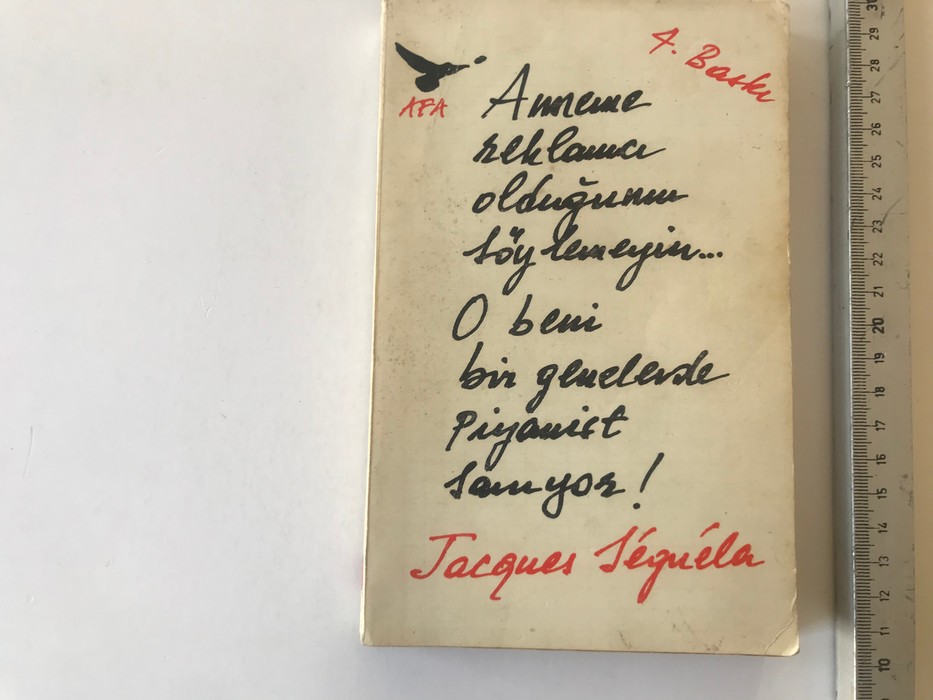 7. Baskı
AFA
Anneme
reklamcı
olduğumu
söylemeyin...
O beni
bir genelevde
Piyanist
sanıyor!
Jacques Séguéla
31
29
28
27
26
25
24
23
22
21
20
19
18
17
16
15
14
13
12
11
10